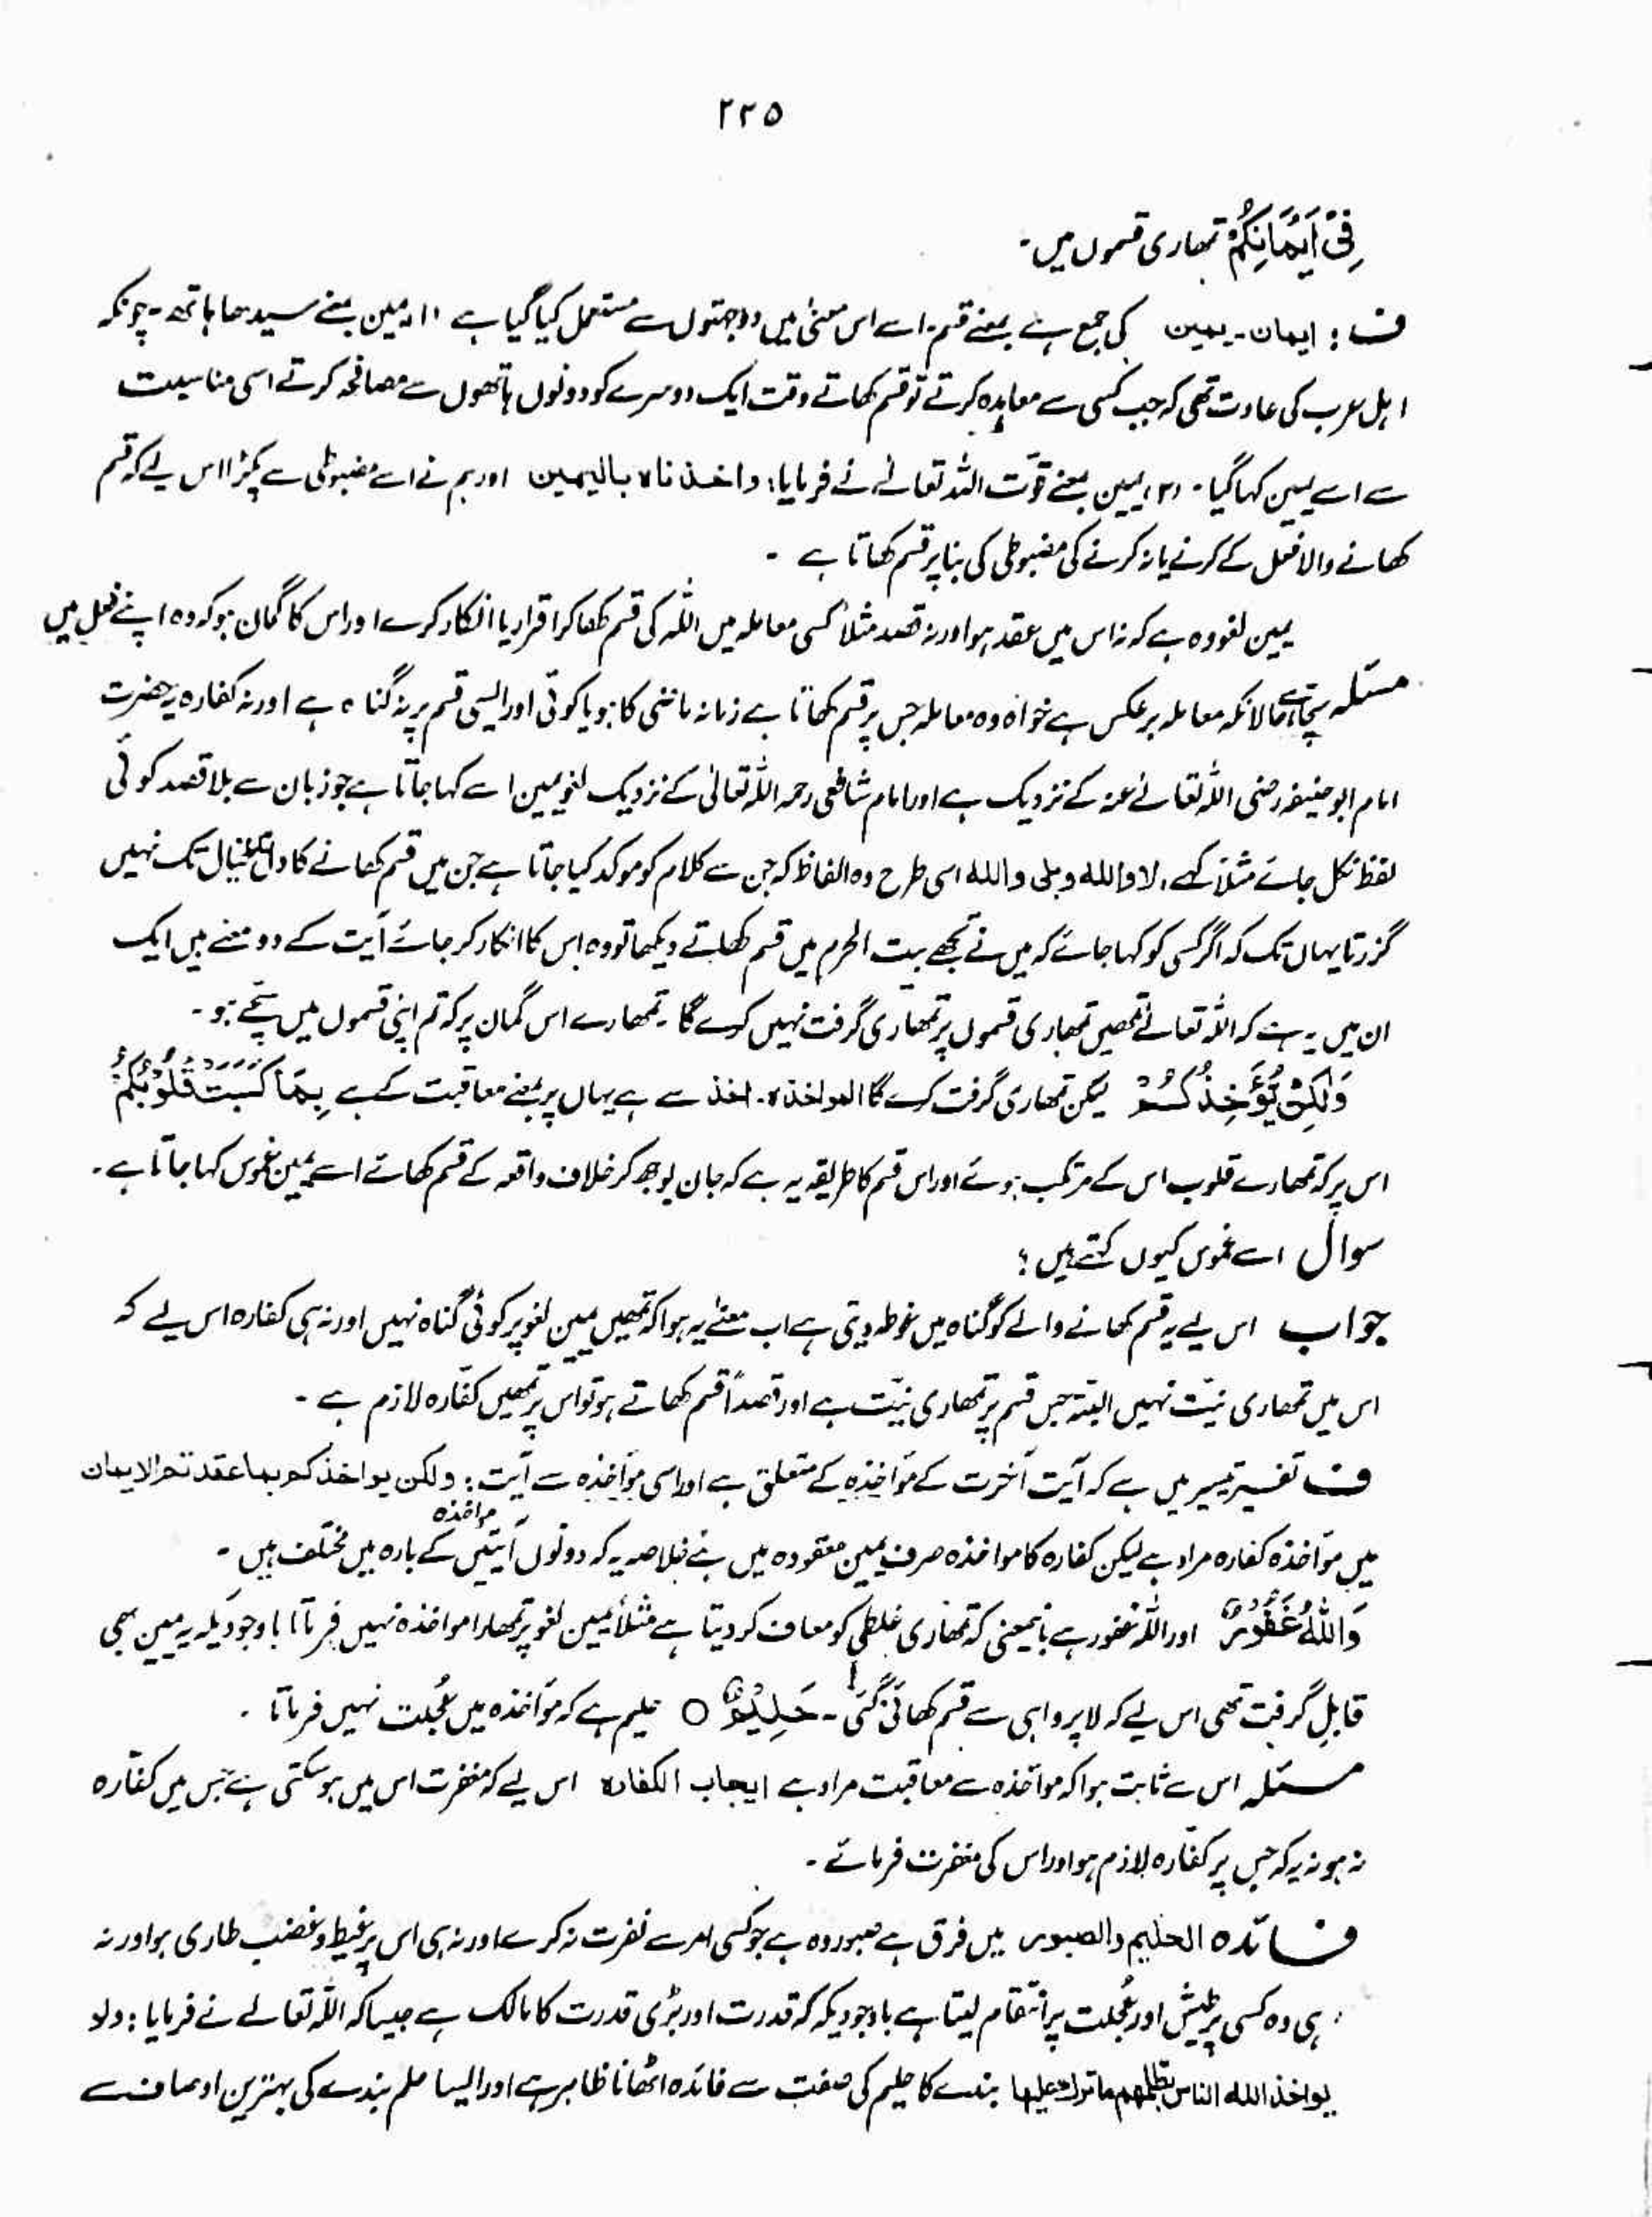 ۲۲۵
فِیْ اَیْمَانِکُمْ تمھاری قسموں میں۔
ف : ایمان۔ یمین کی جمع ہے بمعنے قسم۔ اسے اس معنیٰ میں دو جہتوں سے مستعمل کیا گیا ہے (۱) یمین بمعنے سیدھا ہاتھ۔ چونکہ
اہل عرب کی عادت تھی کہ جب کسی سے معاہدہ کرتے تو قسم کھاتے وقت ایک دوسرے کو دونوں ہاتھوں سے مصافحہ کرتے اسی مناسبت
سے اسے یمین کہا گیا۔ (۲) یمین بمعنے قوّت اللہ تعالےٰ نے فرمایا: واخذناہ بالیمین اور ہم نے اسے مضبوطی سے پکڑا اس لیے کہ قسم
کھانے والا فعل کے کرنے یا نہ کرنے کی مضبوطی کی بنا پر قسم کھاتا ہے ۔
یمین لغو وہ ہے کہ نہ اس میں عقد ہو اور نہ قصد مثلاً کسی معاملہ میں اللہ کی قسم کھا کر اقرار یا انکار کرے اور اس کا گمان ہو کہ وہ اپنے فعل میں
مسئلہ سچّا ہے حالانکہ معاملہ برعکس ہے خواہ وہ معاملہ جس پر قسم کھاتا ہے زمانہ ماضی کا ہو یا کوئی اور ایسی قسم پر نہ گناہ ہے اور نہ کفارہ یہ حضرت
امام ابوحنیفہ رضی اللہ تعالےٰ عنہ کے نزدیک ہے اور امام شافعی رحمہ اللہ تعالیٰ کے نزدیک لغو یمین اسے کہا جاتا ہے جو زبان سے بلا قصد کوئی
لفظ نکل جائے مثلاً کہے، لا واللہ وبلی واللہ اسی طرح وہ الفاظ کہ جن سے کلام کو موکد کیا جاتا ہے جن میں قسم کھانے کا خیال تک نہیں
گزرتا یہاں تک کہ اگر کسی کو کہا جائے کہ میں نے تجھے بیت الحرم میں قسم کھاتے دیکھا تو وہ اس کا انکار کر جائے آیت کے دو معنے ہیں ایک
ان میں یہ ہے کہ اللہ تعالےٰ تمھیں تمھاری قسموں پر تمھاری گرفت نہیں کرے گا۔ تمھارے اس گمان پر کہ تم اپنی قسموں میں سچّے ہو۔
وَلٰکِنْ یُّؤَاخِذُکُمْ لیکن تمھاری گرفت کرے گا المواخذہ۔ اخذ سے ہے یہاں پر بمعنے معاقبت کے ہے بِمَا کَسَبَتْ قُلُوْبُکُمْ
اس پر کہ تمھارے قلوب اس کے مرتکب ہوئے اور اس قسم کا طریقہ یہ ہے کہ جان بوجھ کر خلاف واقعہ کے قسم کھائے اسے یمین غموس کہا جاتا ہے۔
سوال اسے غموس کیوں کہتے ہیں ؟
جواب اس لیے یہ قسم کھانے والے کو گناہ میں غوطہ دیتی ہے اب معنےٰ یہ ہوا کہ تمھیں یمین لغو پر کوئی گناہ نہیں اور نہ ہی کفارہ اس لیے کہ
اس میں تمھاری نیّت نہیں البتہ جس قسم پر تمھاری نیّت ہے اور قصداً قسم کھاتے ہو تو اس پر تمھیں کفّارہ لازم ہے ۔
ف تفسیر تیسیر میں ہے کہ آیت آخرت کے مؤاخذہ کے متعلق ہے اور اسی مؤاخذہ سے آیت : ولکن یواخذکم بما عقدتم الایمان
میں مؤاخذہ کفارہ مراد ہے لیکن کفارہ کا مواخذہ صرف یمین معقودہ میں ہے خلاصہ یہ کہ دونوں آیتیں مواخذہ کے بارہ میں مختلف ہیں ۔
وَاللّٰہُ غَفُوْرٌ اور اللہ غفور ہے بایمعنی کہ تمھاری غلطی کو معاف کر دیتا ہے مثلاً یمین لغو پر تمھارا مواخذہ نہیں فرماتا باوجودیکہ یہ یمین بھی
قابلِ گرفت تھی اس لیے کہ لاپرواہی سے قسم کھائی گئی۔ حَلِیْمٌ ○ حلیم ہے کہ مؤاخذہ میں عُجلت نہیں فرماتا ۔
مسئلہ اس سے ثابت ہوا کہ مواخذہ سے معاقبت مراد ہے ایجاب الکفارہ اس لیے کہ مغفرت اس میں ہو سکتی ہے جس میں کفّارہ
نہ ہو نہ یہ کہ جس پر کفّارہ لازم ہو اور اس کی مغفرت فرمائے ۔
فائدہ الحلیم والصبور میں فرق ہے صبور وہ ہے جو کسی امر سے نفرت نہ کرے اور نہ ہی اس پر غیظ و غضب طاری ہو اور نہ
ہی وہ کسی پر طیش اور عُجلت پر انتقام لیتا ہے باوجودیکہ کہ قدرت اور بڑی قدرت کا مالک ہے جیسا کہ اللہ تعالےٰ نے فرمایا : ولو
یواخذ اللہ الناس بظلمھم ما ترك علیھا بندے کا حلیم کی صفت سے فائدہ اٹھانا ظاہر ہے اور ایسا حلم بندے کی بہترین اوصاف سے